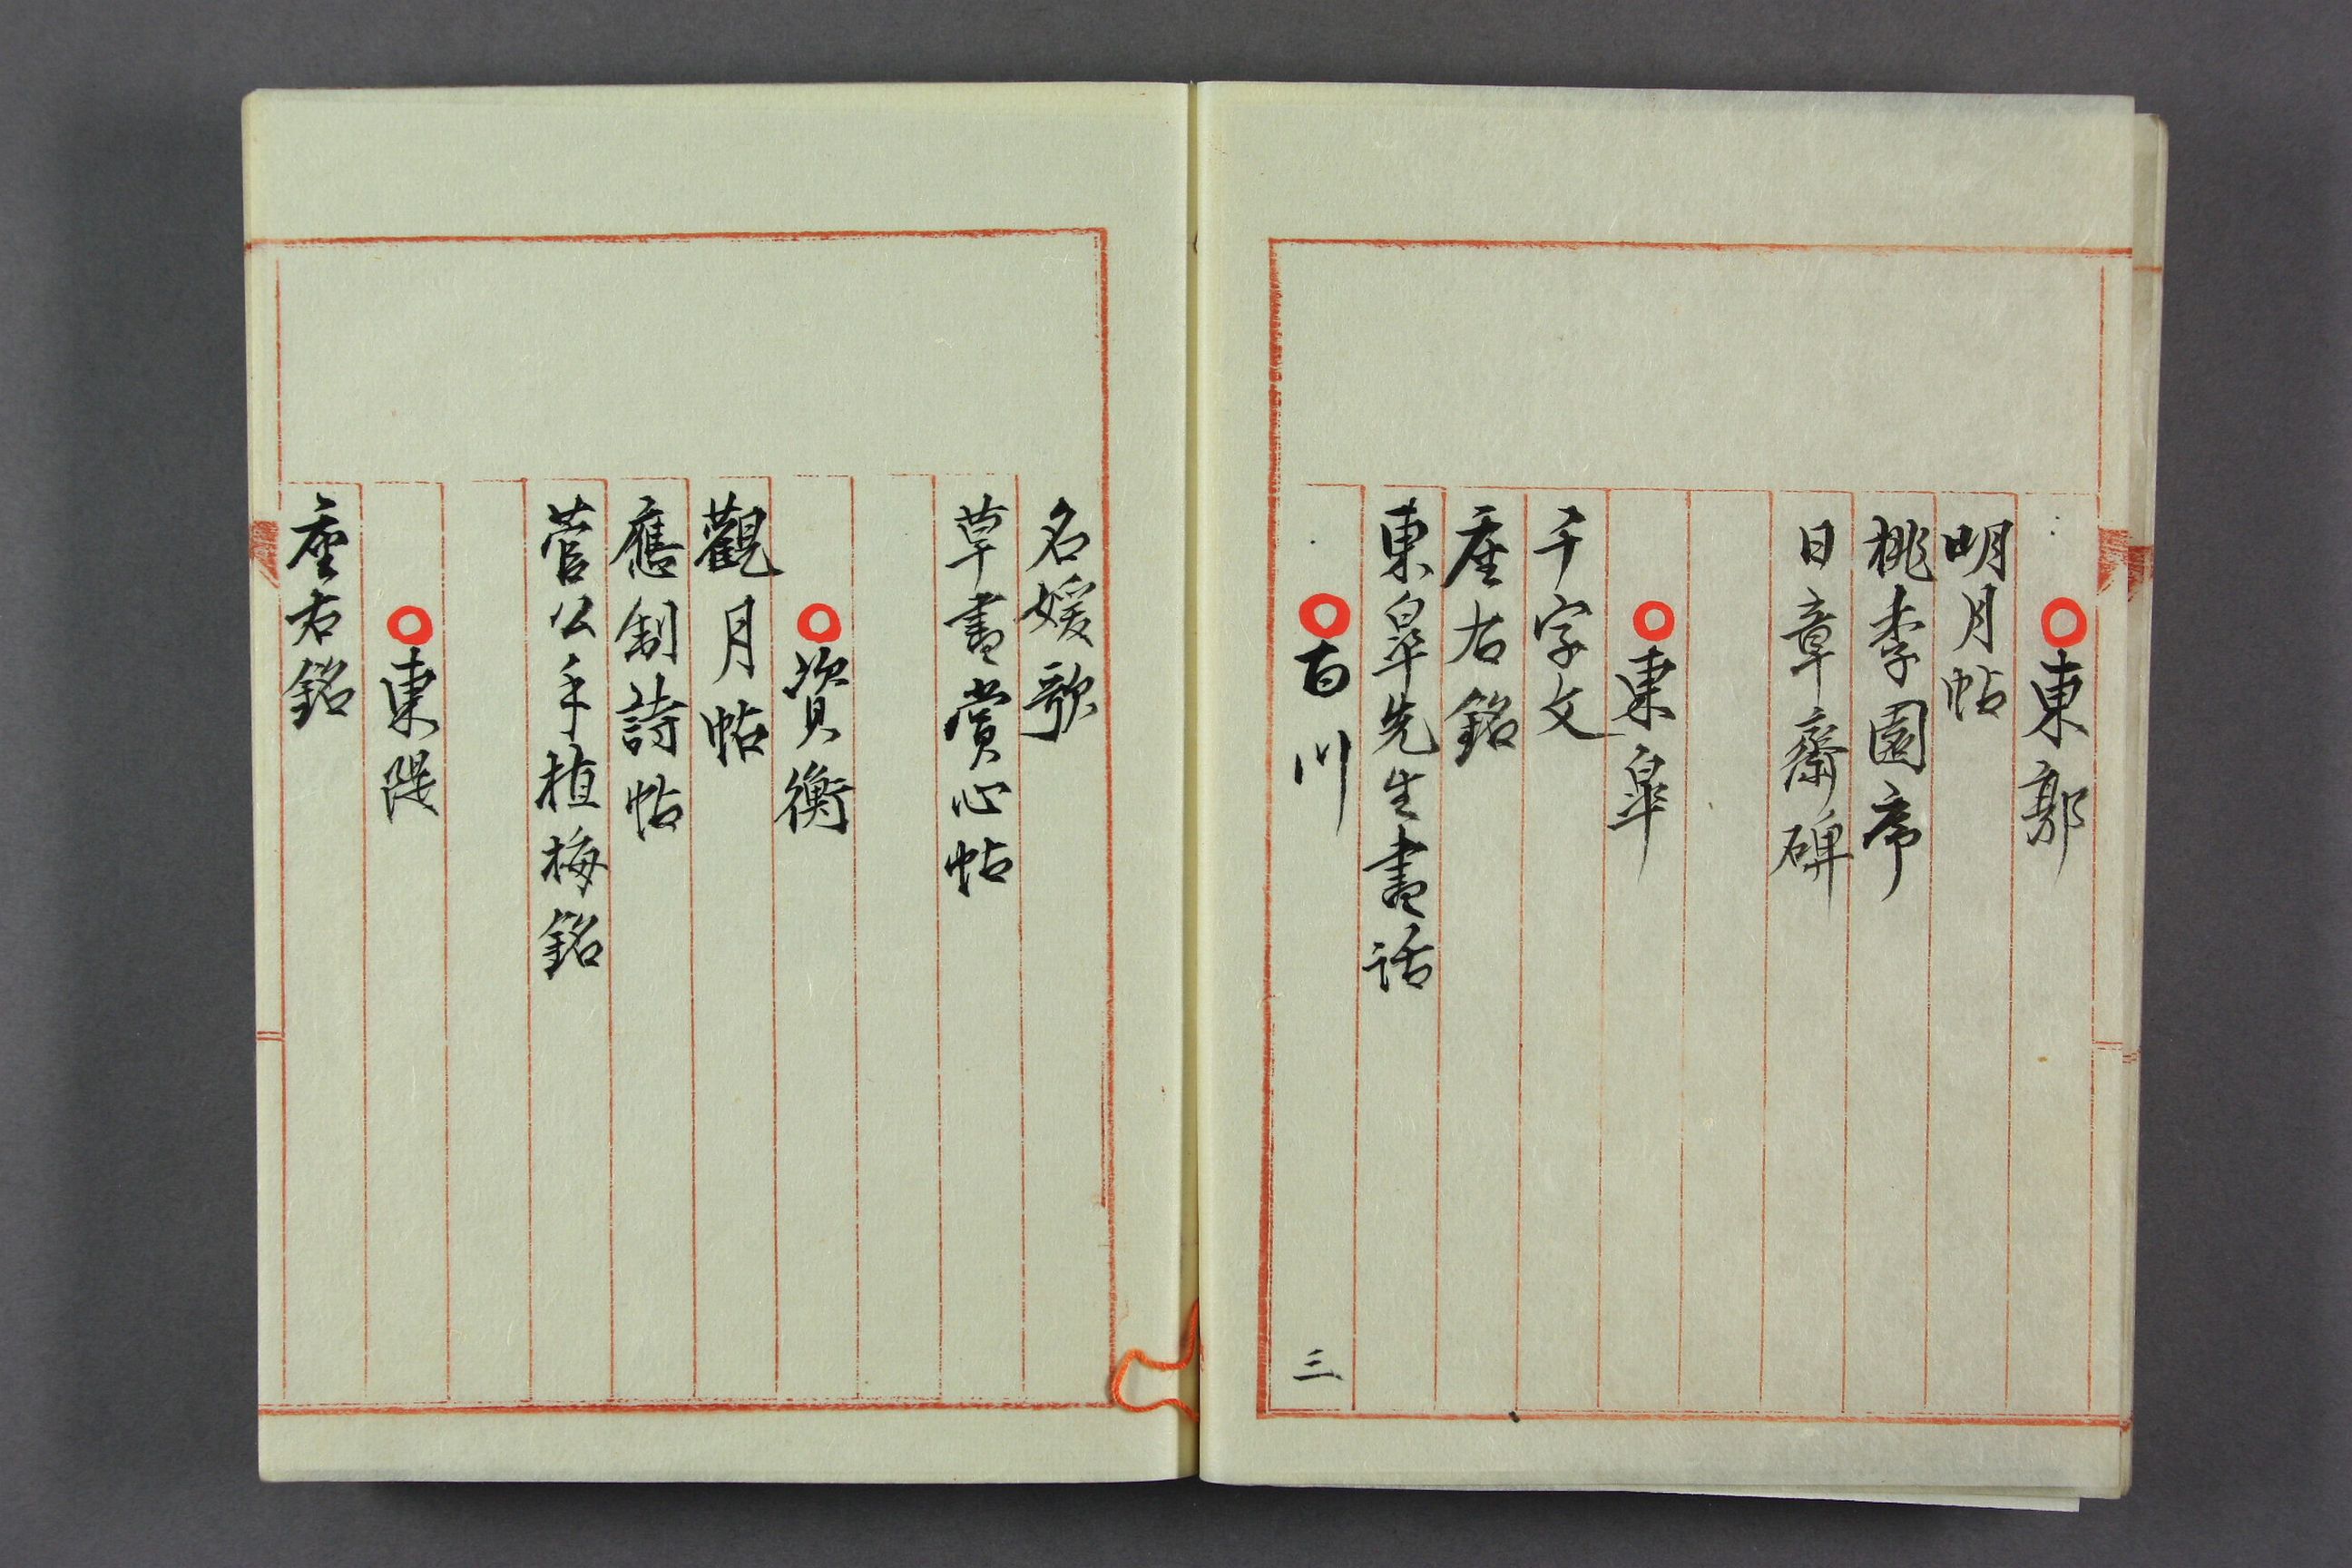 ○東郭
明月帖
桃李園序
日章齋碑
○東皐
千字文
座右銘
東皐先生書話
○百川
三
名媛歌
草書賞心帖
○資衡
觀月帖
應制詩帖
菅公手植梅銘
○東隄
座右銘